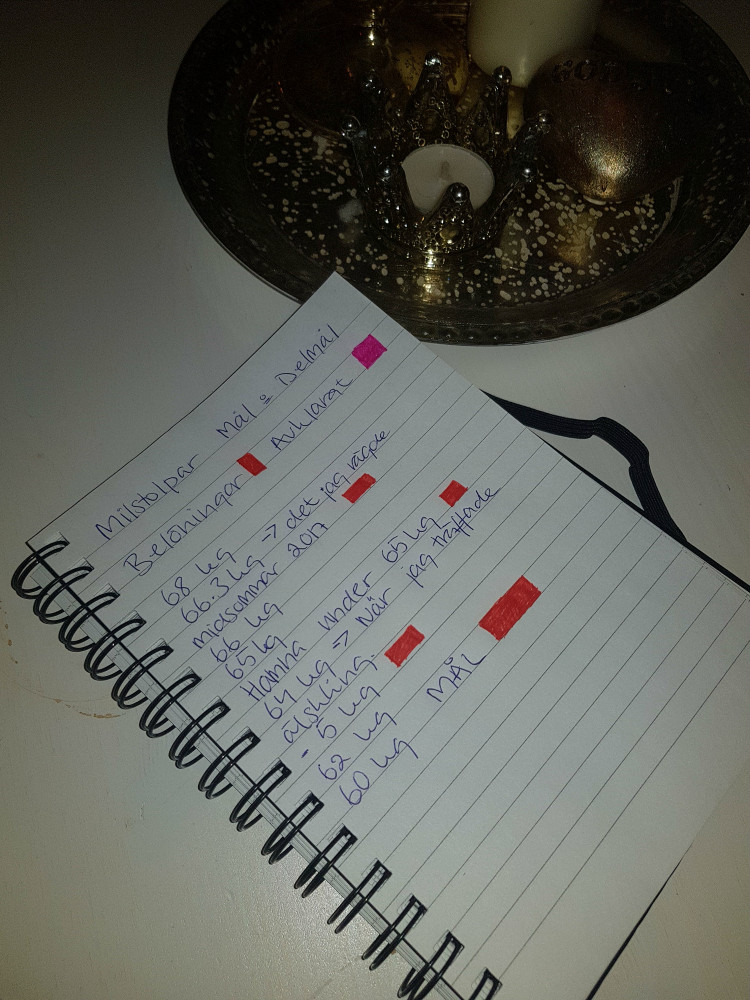 Milstolpar Mål o Delmål
Belöningar Avklarat
68 kg
66.3 kg -> det jag vägde
midsommar 2017
66 kg
65 kg
Hamna under 65 kg
64 kg -> När jag träffade
älskling.
- 5 kg
62 kg
60 kg MÅL